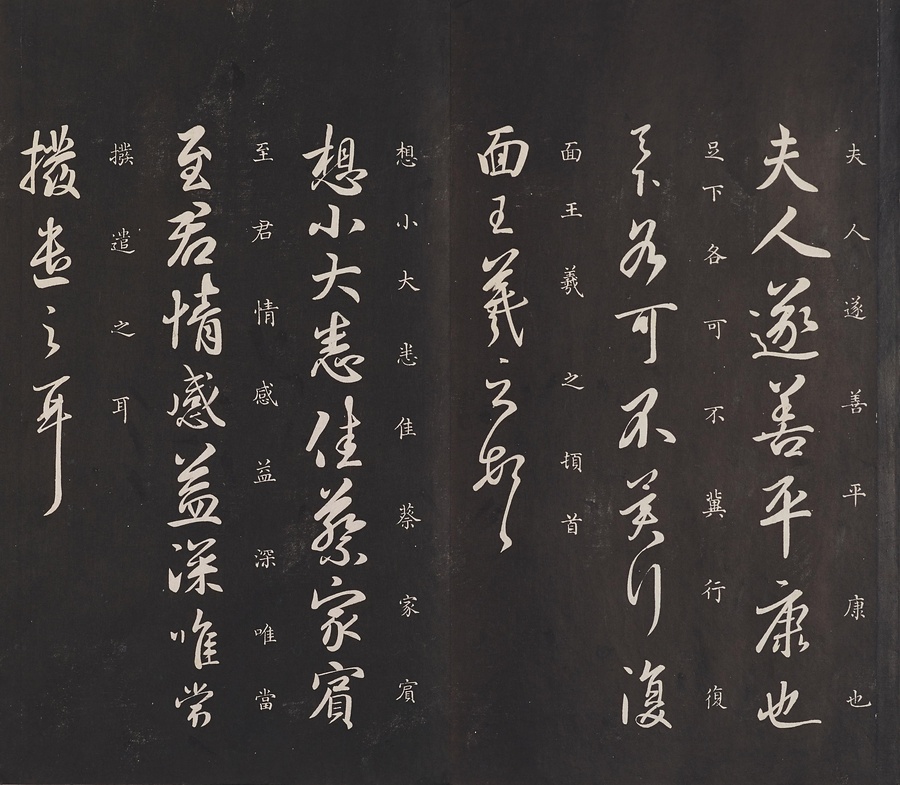 夫人遂善平康也
夫人遂善平康也
足下各可不冀行復
足下各可不冀行復
面王羲之頓首
面王羲之頓首
想小大悉佳蔡家賓
想小大悉佳蔡家賓
至君情感益深唯當
至君情感益深唯當
撥遣之耳
撥遣之耳